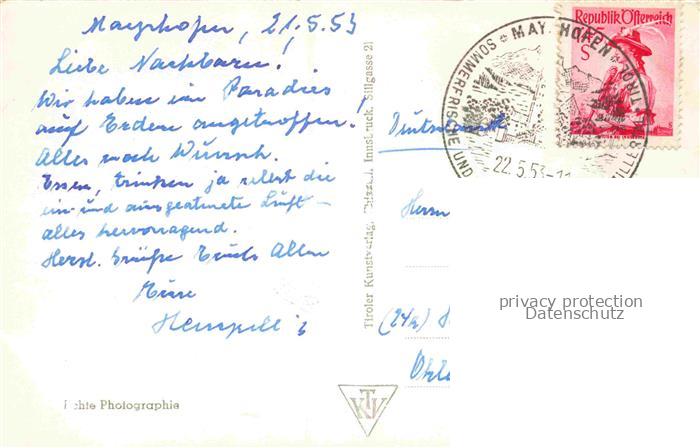 Mayrhofen, 21.5.53
Liebe Nachbarn!
Wir haben ein Paradies
auf Erden angetroffen!
Alles nach Wunsch.
Essen, Trinken ja selbst die
ein- und ausgeatmete Luft –
alles hervorragend.
Herzl. Grüße Euch Allen
Eure
Echte Photographie
Tiroler Kunstverlag, Innsbruck, Sillgasse 21
TKV
Deutschland
Herrn
(24a)
Republik Österreich
S
MAYRHOFEN * TIROL *
SOMMERFRISCHE UND
22.5.53-11
privacy protection
Datenschutz